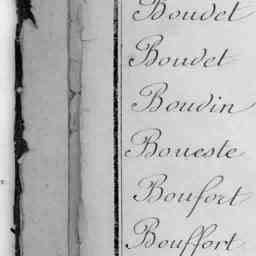 Boudet
Boudet
Boudin
Boueste
Boufort
Bouffort